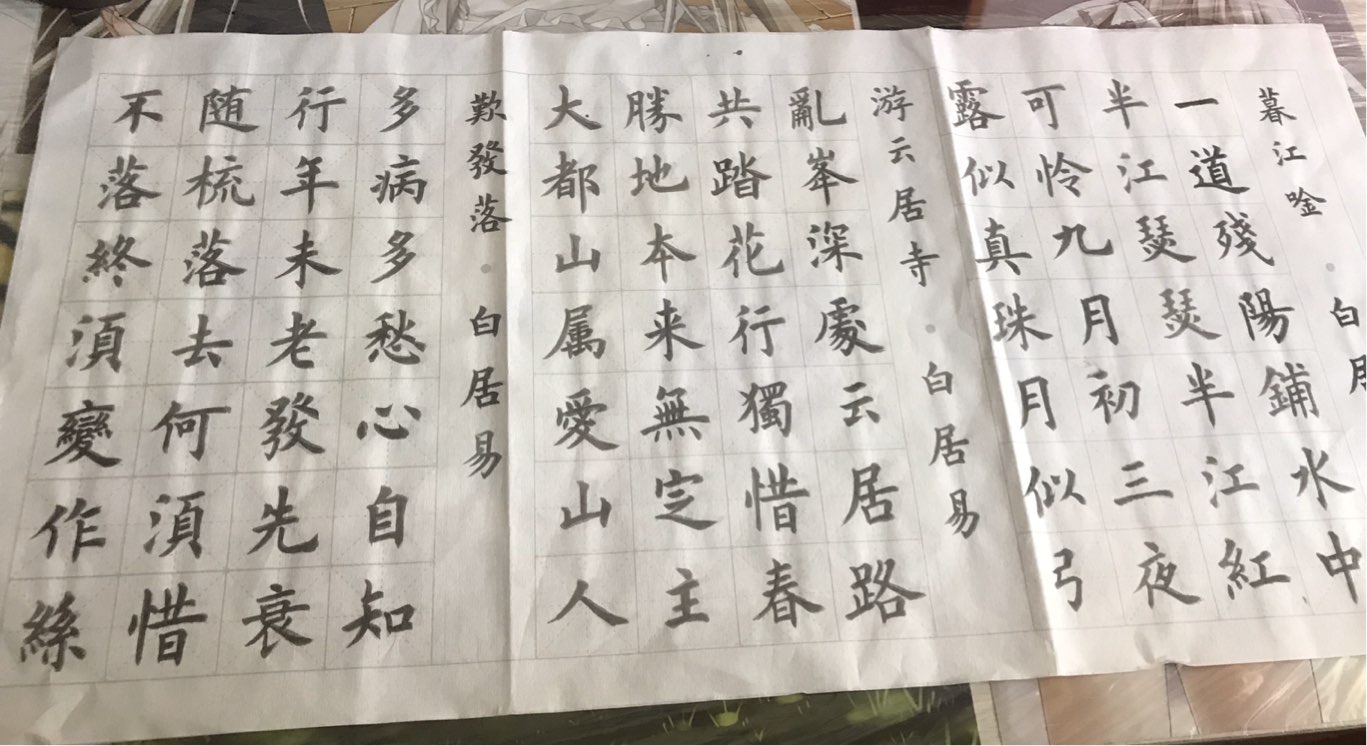 暮江唫·白居
一道殘陽鋪水中
半江瑟瑟半江紅
可怜九月初三夜
露似真珠月似弓
游云居寺·白居易
亂峯深處云居路
共踏花行獨惜春
勝地本来無定主
大都山属愛山人
歎發落·白居易
多病多愁心自知
行年未老發先衰
随梳落去何湏惜
不落終湏變作絲